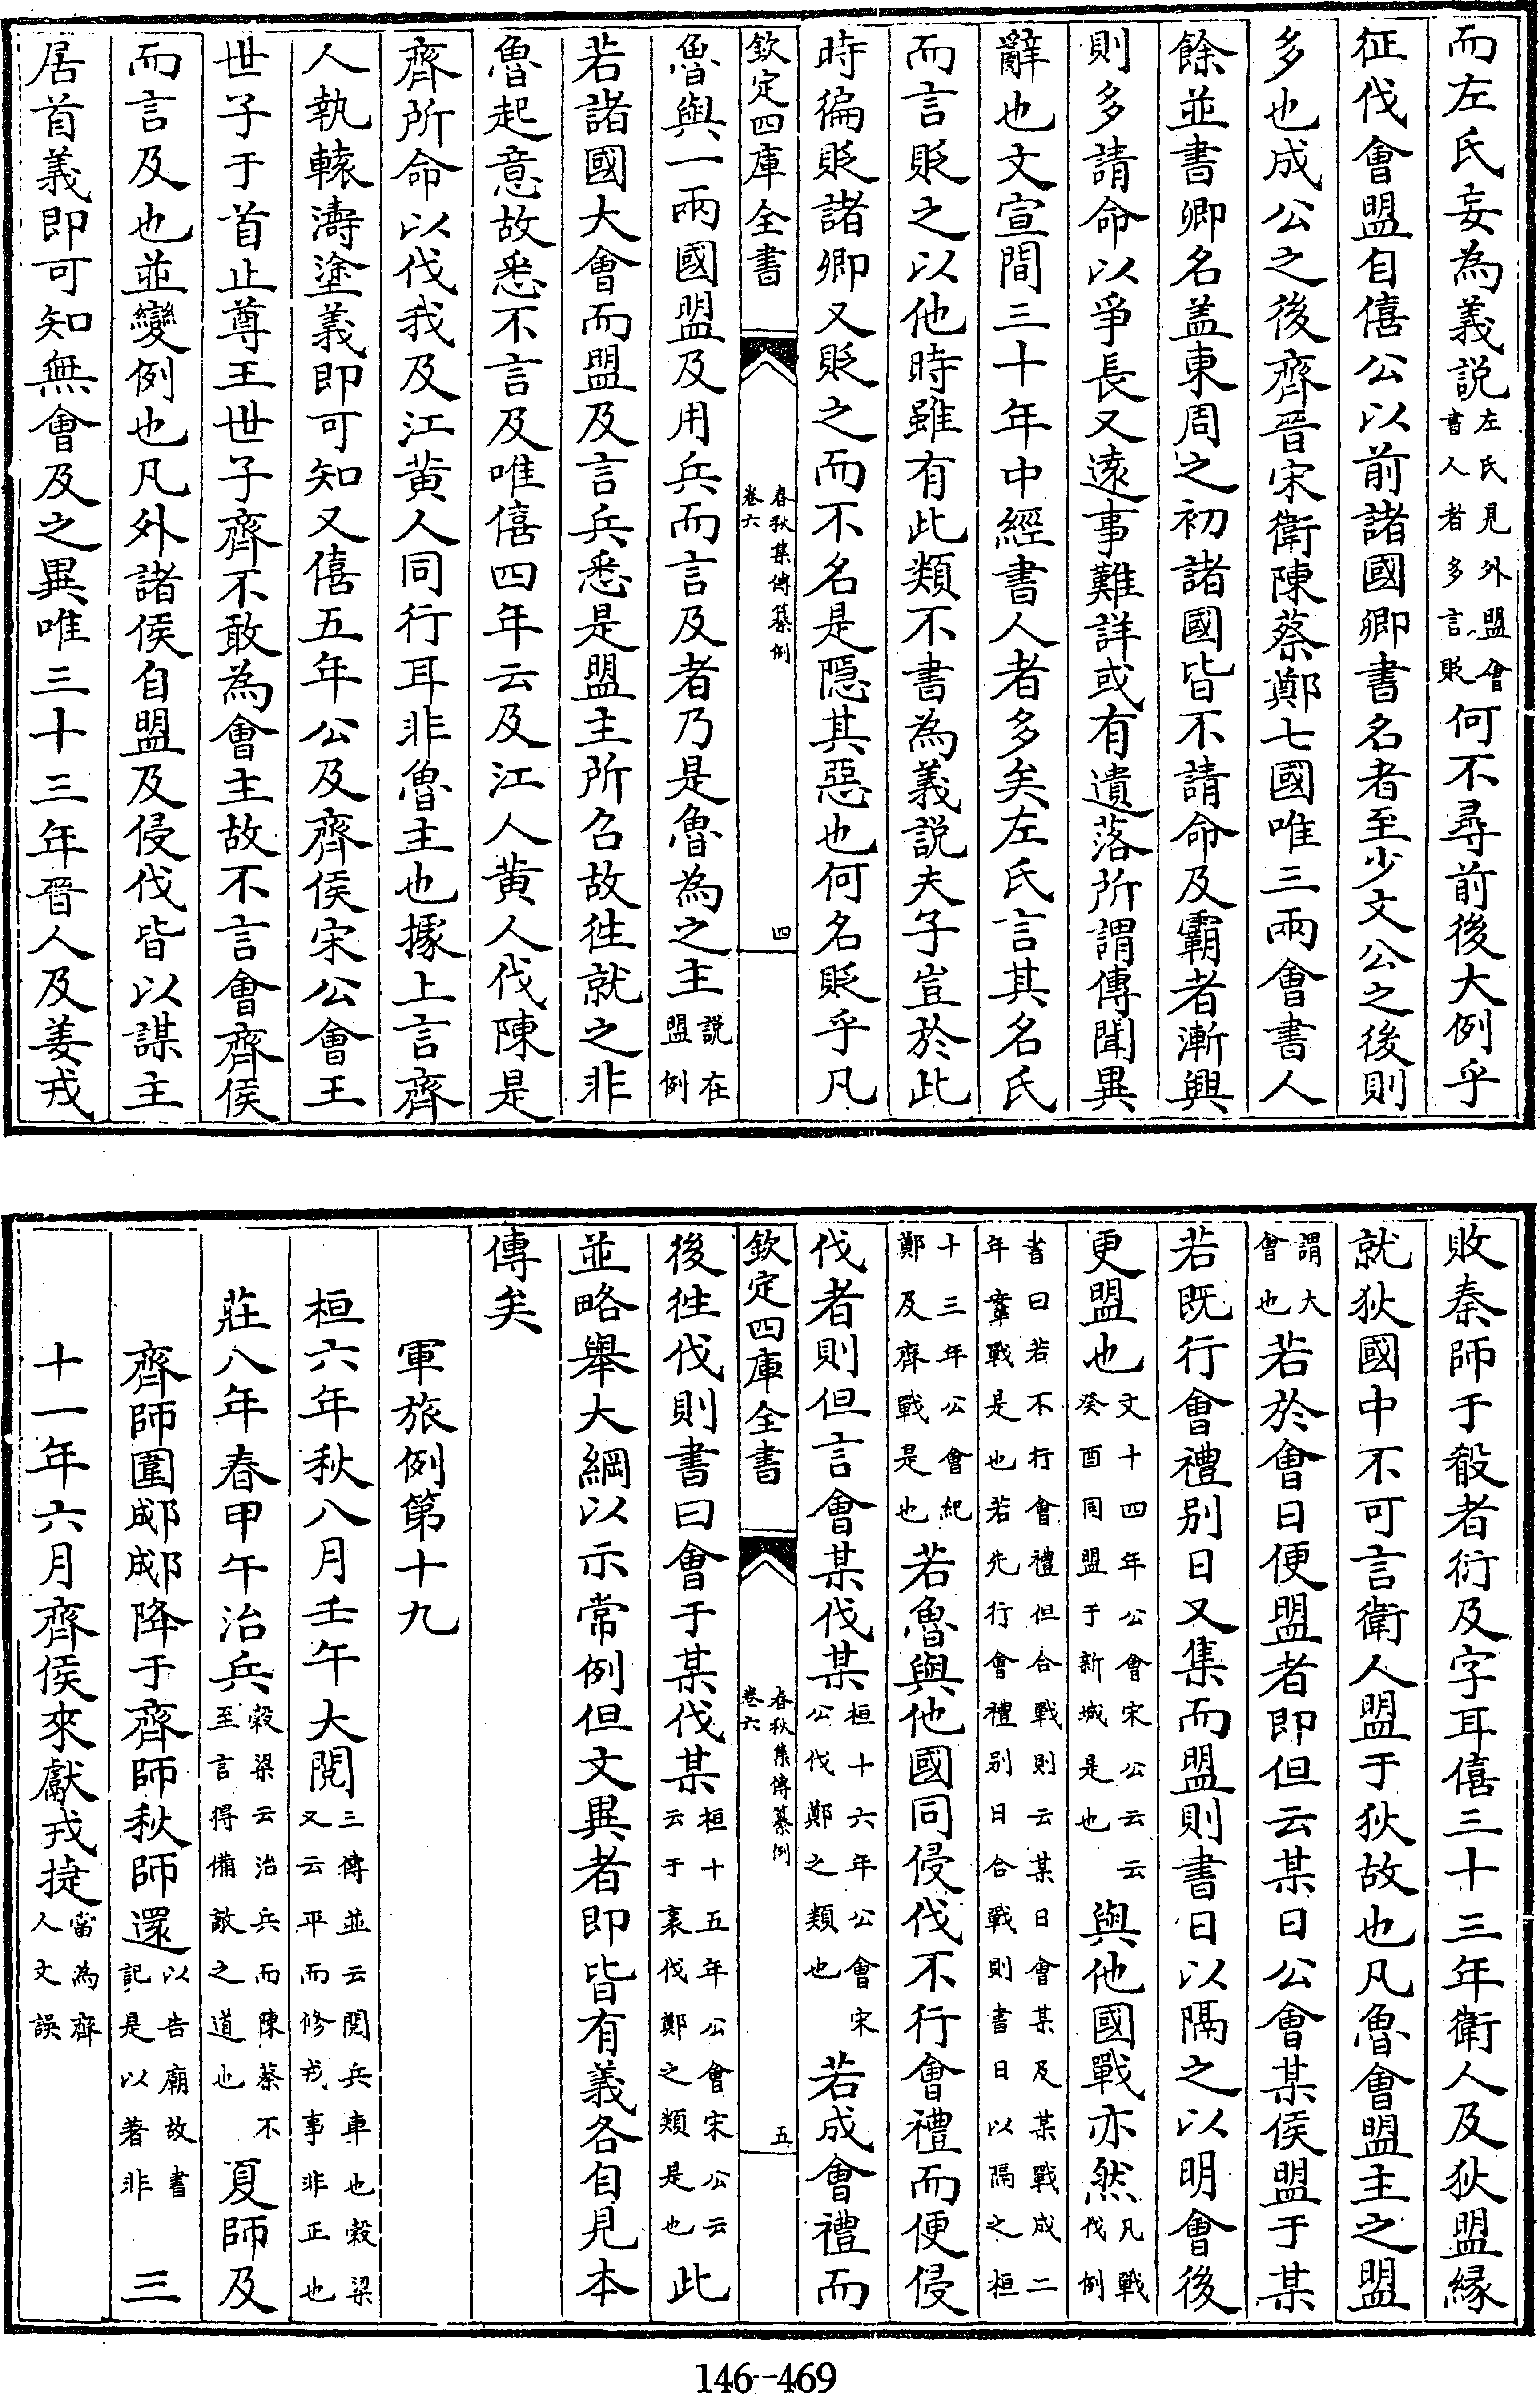 而左氏妄為義說左氏見外盟會書人者多言貶何不尋前後大例乎
征伐會盟自僖公以前諸國卿書名者至少文公之後則
多也成公之後齊晉宋衛陳蔡鄭七國唯三兩會書人
餘並書卿名盖東周之初諸國皆不請命及霸者漸興
則多請命以爭長又逺事難詳或有遺落所謂傳聞異
辭也文宣間三十年中經書人者多矣左氏言其名氏
而言貶之以他時雖有此類不書為義說夫子豈於此
時徧貶諸卿又貶之而不名是隱其惡也何名貶乎凡
欽定四庫全書 春秋集傳纂例 卷六 四
魯與一兩國盟及用兵而言及者乃是魯為之主說在盟例
若諸國大會而盟及言兵悉是盟主所召故徃就之非
魯起意故悉不言及唯僖四年云及江人黄人伐陳是
齊所命以伐我及江黄人同行耳非魯主也據上言齊
人執轅濤塗義即可知又僖五年公及齊侯宋公會王
世子于首止尊王世子齊不敢為會主故不言會齊侯
而言及也並變例也凡外諸侯自盟及侵伐皆以謀主
居首義即可知無會及之異唯三十三年晉人及姜戎
敗秦師于殽者衍及字耳僖三十三年衛人及狄盟縁
就狄國中不可言衛人盟于狄故也凡魯會盟主之盟
謂大會也若於會日便盟者即但云某日公會某侯盟于某
若既行會禮别日又集而盟則書日以隔之以明會後
更盟也文十四年公會宋公云云癸酉同盟于新城是也與他國戰亦然凡戰伐例
書日若不行會禮但合戰則云某日會某及某戰成二年鞌戰是也若先行會禮别日合戰則書日以隔之桓
十三年公會紀鄭及齊戰是也若魯與他國同侵伐不行會禮而便侵
伐者則但言會某伐某桓十六年公會宋公伐鄭之類也若成會禮而
欽定四庫全書 春秋集傳纂例 卷六 五
後徃伐則書曰會于某伐某桓十五年公會宋公云云于袲伐鄭之類是也此
並略舉大綱以示常例但文異者即皆有義各自見本
傳矣
軍旅例第十九
桓六年秋八月壬午大閱三傳並云閱兵車也榖梁又云平而修戎事非正也
莊八年春甲午治兵榖梁云治兵而陳蔡不至言得備敵之道也夏師及
齊師圍郕郕降于齊師秋師還以告廟故書記是以著非三
十一年六月齊侯來獻戎捷當為齊人文誤
146--469